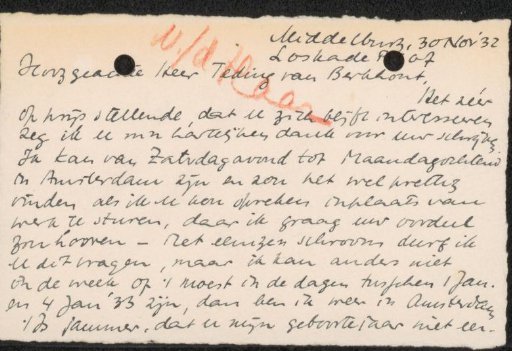 Middelburg, 30 Nov '32
Loskade
v/d Haar
Hooggeachte Heer Teding van Berkhout,
Het zéér
op prijs stellende, dat U zich blijft interesseren
zeg ik U m'n hartelijken dank voor uw schrijven.
Ik kan van Zaterdagavond tot Maandagochtend
in Amsterdam zijn en zou het wel prettig
vinden als ik U kon spreken inplaats van
werk te sturen, daar ik graag uw oordeel
zou hooren – Met eenigen schroom durf ik
U dit vragen, maar ik kan anders niet
in de week of 't moest in de dagen tusschen 1 Jan.
en 4 Jan '33 zijn, dan ben ik weer in Amsterdam
't Is jammer, dat U mijn geboortejaar niet een-